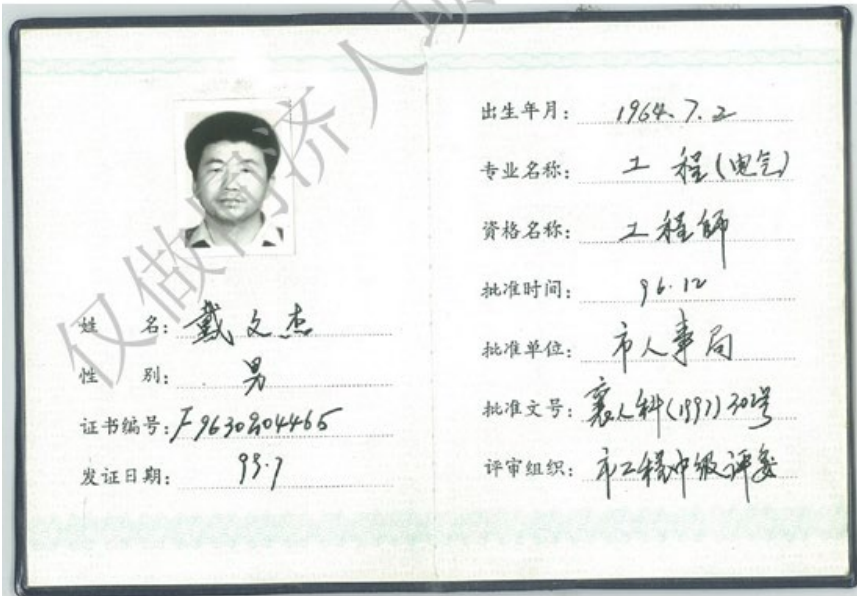 姓 名：戴文杰
性 别：男
证书编号：F9630904465
发证日期：99.7
出生年月：1964.7.2
专业名称：工程(电气)
资格名称：工程师
批准时间：96.12
批准单位：市人事局
批准文号：襄人科(1997)302号
评审组织：市工程中级评委
仅做高济人项